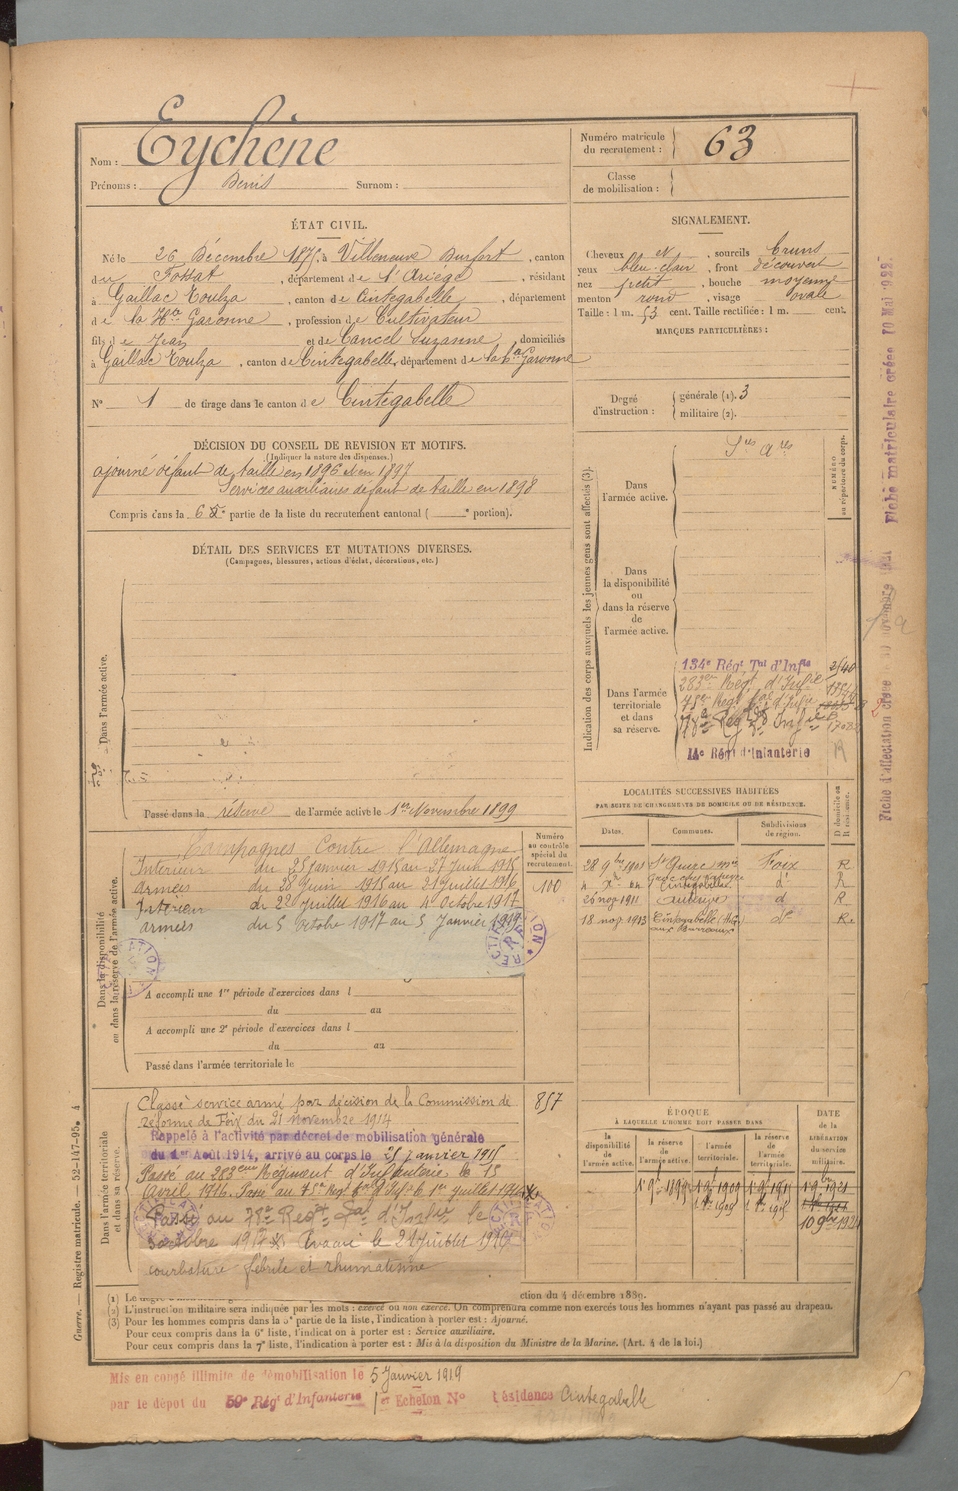 Nom : Eychène
Prénoms : Denis Surnom :
Numéro matricule du recrutement : 63
Classe de mobilisation :
ÉTAT CIVIL.
Né le 26 Décembre 1875, à Villeneuve Durfort, canton
du Fossat, département de l'Ariège, résidant
à Gaillac Toulza, canton de Cintegabelle, département
de la Hte Garonne, profession de Cultivateur
fils de Jean et de Cancel Suzanne, domiciliés
à Gaillac Toulza, canton de Cintegabelle, département de la Hte Garonne
N° 1 de tirage dans le canton de Cintegabelle
SIGNALEMENT.
Cheveux et, sourcils bruns
yeux bleu-clair, front découvert
nez petit, bouche moyenne
menton rond, visage ovale
Taille : 1 m. 53 cent. Taille rectifiée : 1 m. cent.
MARQUES PARTICULIÈRES :
Degré d'instruction : générale (1). 3
militaire (2).
DÉCISION DU CONSEIL DE REVISION ET MOTIFS.
(Indiquer la nature des dispenses.)
ajourné défaut de taille en 1896 et en 1897
Services auxiliaires défaut de taille en 1898
Compris dans la 6e partie de la liste du recrutement cantonal ( e portion).
DÉTAIL DES SERVICES ET MUTATIONS DIVERSES.
(Campagnes, blessures, actions d'éclat, décorations, etc.)
Dans l'armée active.
Passé dans la réserve de l'armée active le 1er Novembre 1899
Indication des corps auxquels les jeunes gens sont affectés (3).
NUMÉRO au répertoire du corps.
Dans l'armée active.
Dans la disponibilité ou dans la réserve de l'armée active.
Dans l'armée territoriale et dans sa réserve.
134e Régt Tal d'Infie
283e Régt d'Infie
75e Régt d'Infie
78e Régt d'Infie
14e Régt d'Infanterie
LOCALITÉS SUCCESSIVES HABITÉES
PAR SUITE DE CHANGEMENTS DE DOMICILE OU DE RÉSIDENCE.
Dates. Communes. Subdivisions de région. D domicile ou R résidence.
28 9bre 1901 Foix R
Cintegabelle d° R
26 nov 1911 d R
18 nov 1913 Cintegabelle d° R
Campagnes Contre l'Allemagne
Intérieur du 25 janvier 1915 au 27 Juin 1915
armées du 28 Juin 1915 au 21 Juillet 1916
Intérieur du 22 juillet 1916 au 4 Octobre 1917
armées du 5 Octobre 1917 au 5 Janvier 1919
Numéro au contrôle spécial du recrutement.
100
Dans la disponibilité ou dans la réserve de l'armée active.
A accompli une 1re période d'exercices dans l
du au
A accompli une 2e période d'exercices dans l
du au
Passé dans l'armée territoriale le
Classé service armé par décision de la Commission de
réforme de Foix du 21 novembre 1914
857
Rappelé à l'activité par décret de mobilisation générale
du 1er Août 1914, arrivé au corps le 25 janvier 1915
Passé au 283eme Régiment d'Infanterie le 15
Avril 1916. Passé au 75e Régt d'Infie le 1er juillet
Passé au 78e Régt d'Infie le
5 octobre 1917 Evacué le 21 Juillet 1916
courbature fébrile et rhumatisme
Dans l'armée territoriale et dans sa réserve.
ÉPOQUE
À LAQUELLE L'HOMME DOIT PASSER DANS
la disponibilité de l'armée active.
la réserve de l'armée active.
l'armée territoriale.
la réserve de l'armée territoriale.
DATE de la LIBÉRATION du service militaire.
10 9bre 1921
ction du 4 décembre 1889.
(2) L'instruction militaire sera indiquée par les mots : exercé ou non exercé. On comprendra comme non exercés tous les hommes n'ayant pas passé au drapeau.
(3) Pour les hommes compris dans la 5e partie de la liste, l'indication à porter est : Ajourné.
Pour ceux compris dans la 6e liste, l'indication à porter est : Service auxiliaire.
Pour ceux compris dans la 7e liste, l'indication à porter est : Mis à la disposition du Ministre de la Marine. (Art. 4 de la loi.)
Guerre. — Registre matricule. — 52-147-95. 4
Mis en congé illimité de démobilisation le 5 Janvier 1919
par le dépôt du 59e Régt d'Infanterie 1er Echelon N° Résidence Cintegabelle
Fiche matriculaire créée 10 Mai 1922